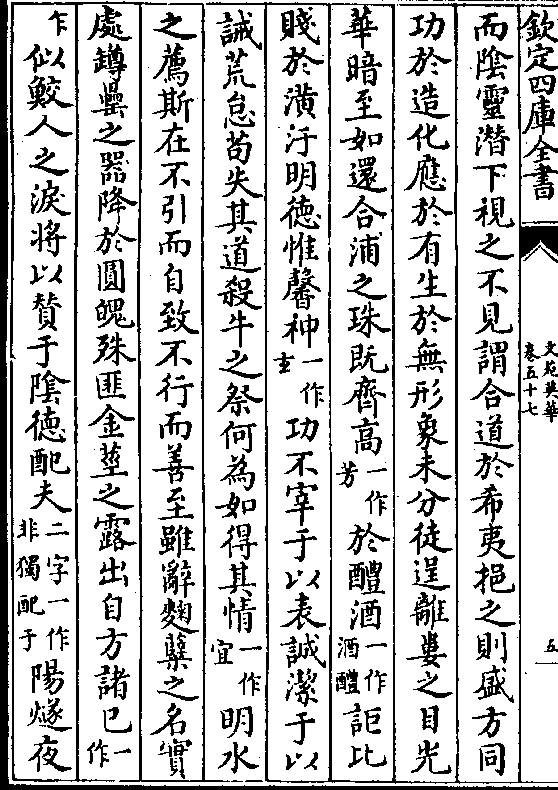 欽定四庫全書
文苑英華
卷五十七
五
而陰靈潜下視之不見謂合道於希夷挹之則盛方同
功於造化應於有生於無形象未分徒逞離婁之目光
華暗至如還合浦之珠既齊高一作芳於醴酒一作酒醴詎比
賤於潢汙明德惟馨神一作玄功不宰于以表誠潔于以
誡荒怠苟失其道殺牛之祭何為如得其情一作宜明水
之薦斯在不引而自致不行而善至雖辭麴蘖之名實
處罇罍之器降於圓魄殊匪金莖之露出自方諸已一作
乍似鮫人之淚將以贊于陰德配夫二字一作非獨配于陽燧夜